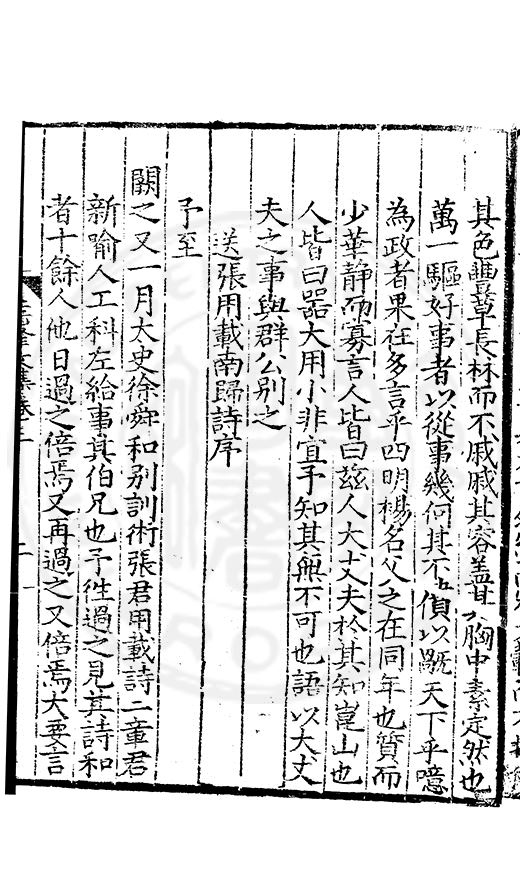 其色豊草長林而不戚戚其容蓋其胸中素定然也
萬一驅好事者以從事幾何其不僨以毀天下乎噫
為政者果在多言乎四明楊名父之在同年也質而
少華静而寡言人皆曰茲人大丈夫於其知崑山也
人皆曰器大用小非宜予知其無不可也語以大丈
夫之事與群公別之
送張用載南歸詩序
予至
闕之又一月太史徐舜和別訓術張君用載詩二章君
新喻人工科左給事真伯兄也予徃過之見其詩和
者十餘人他日過之倍焉又再過之又倍焉大要言